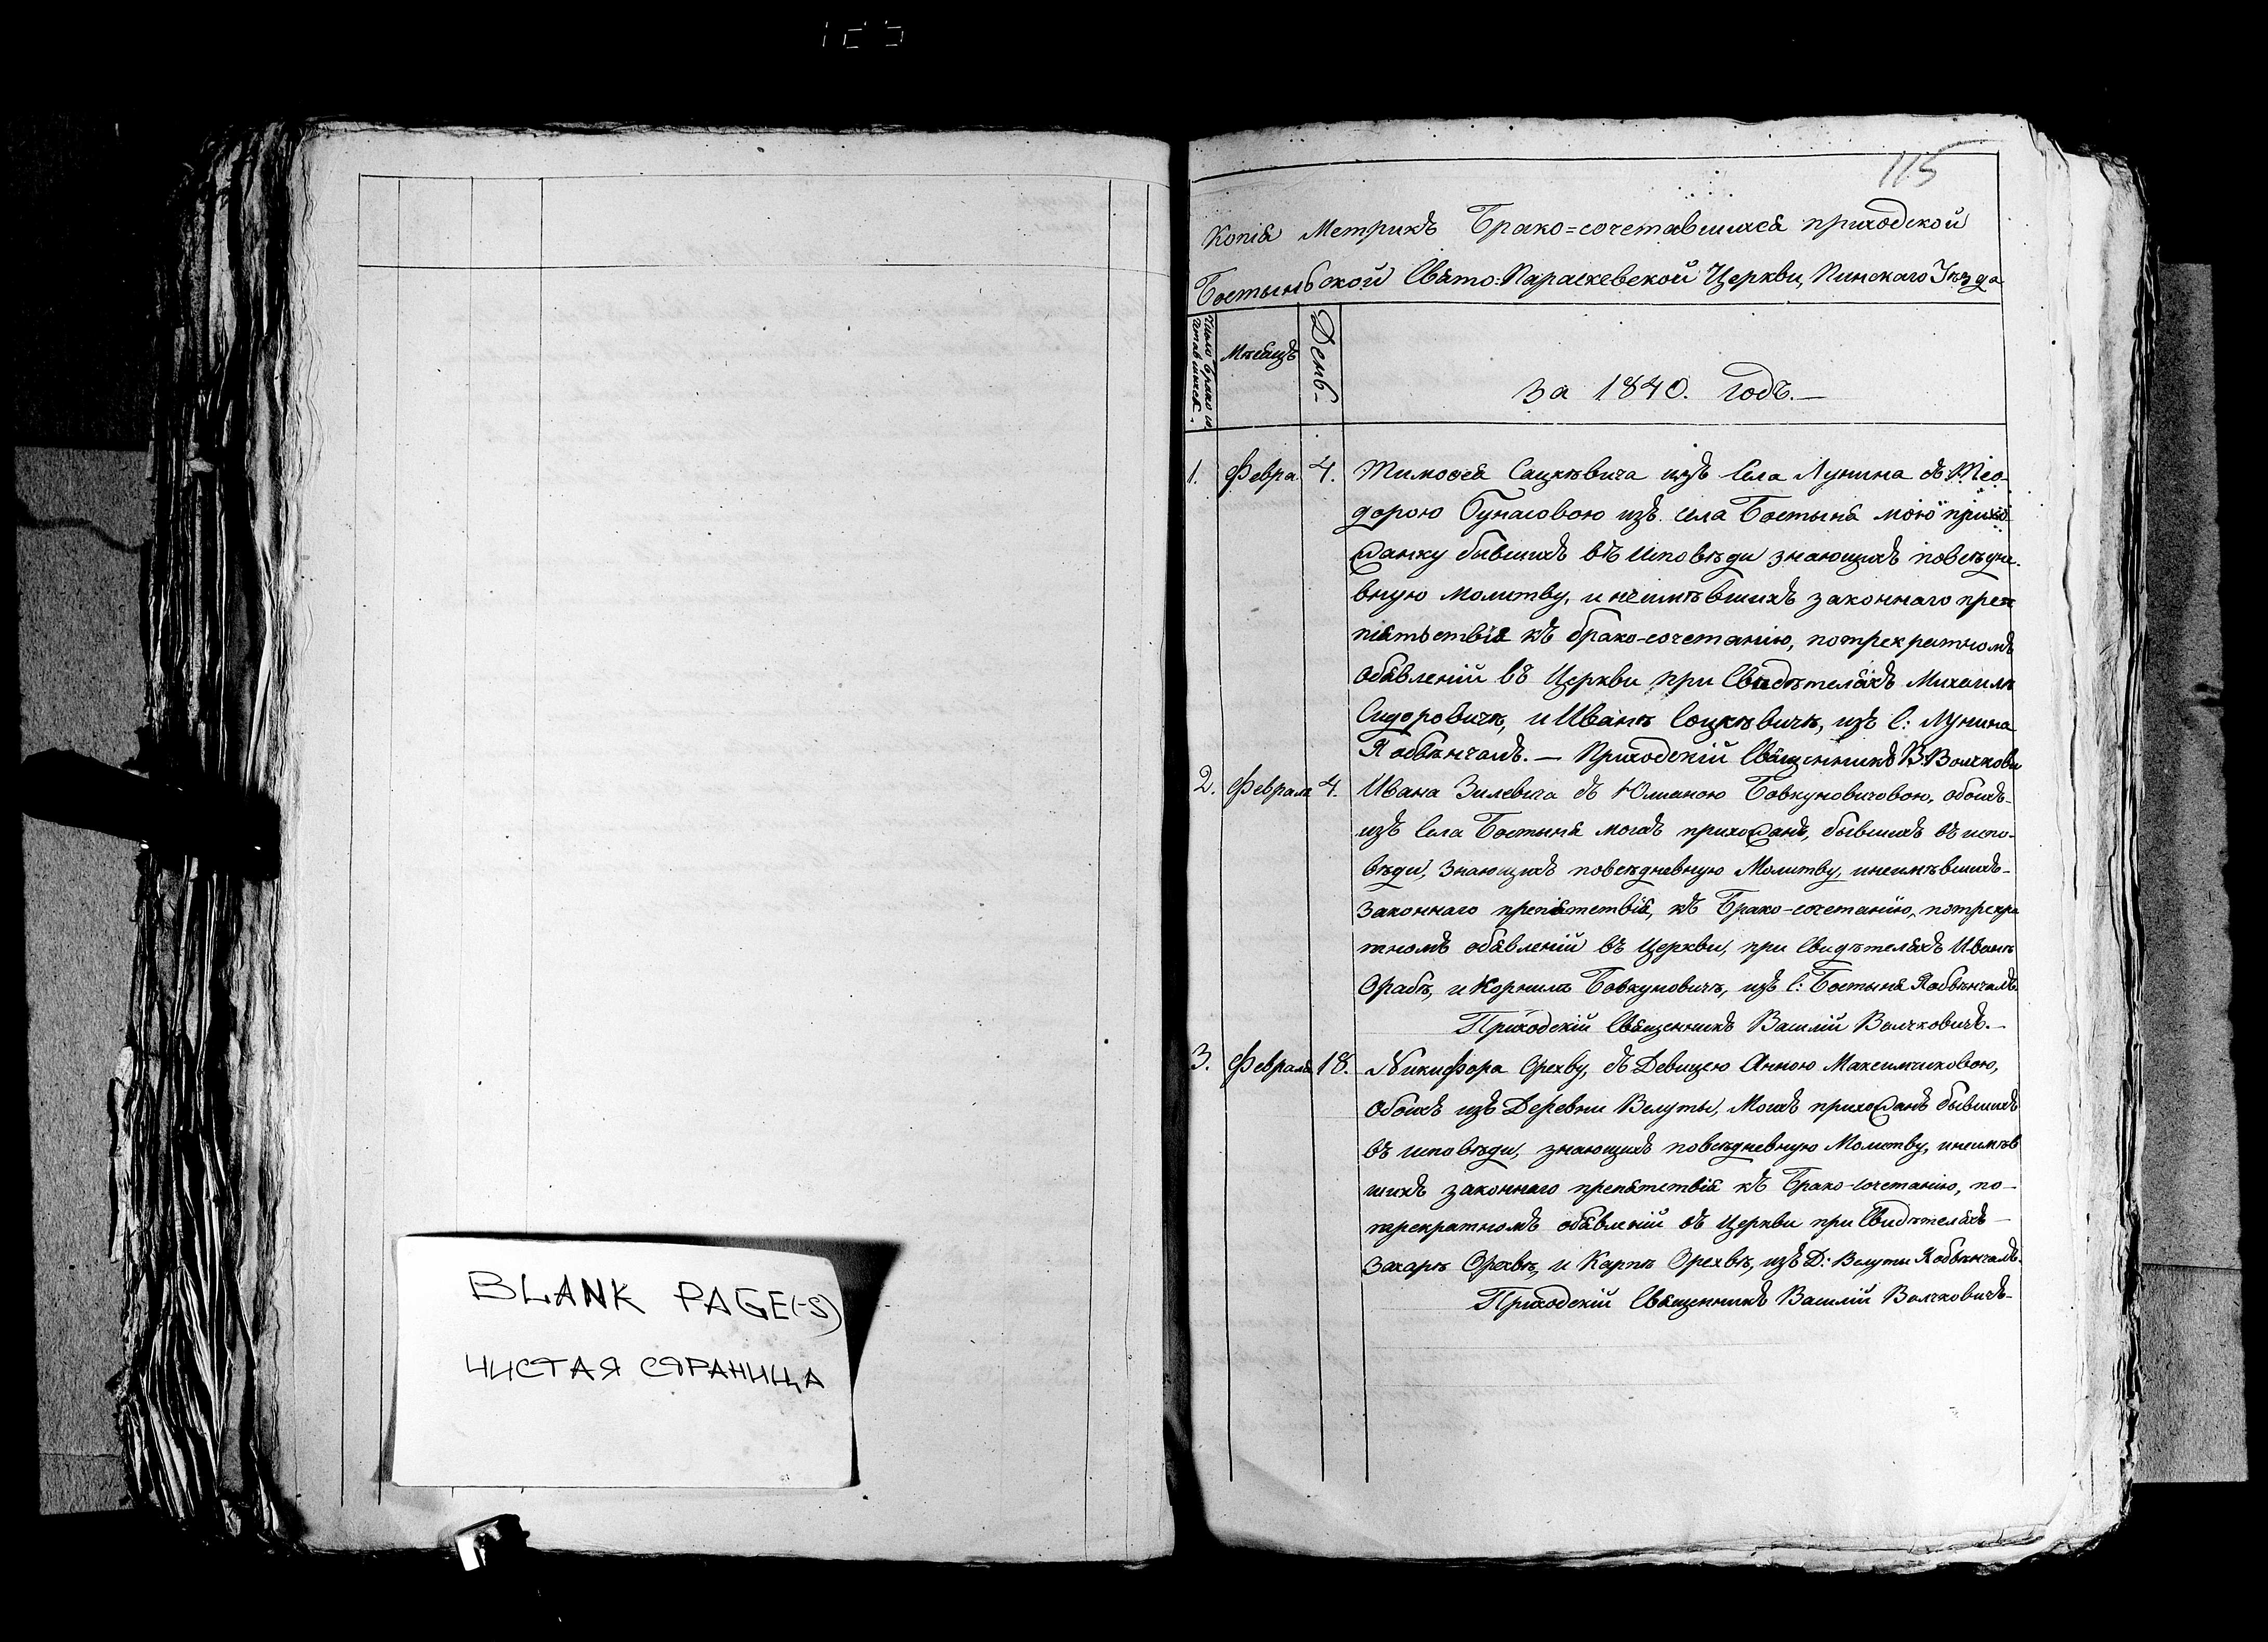 BLANK PAGE(-S)
ЧИСТАЯ СТРАНИЦА
115
Копія Метрикъ Брако=сочетавшихся приходской
Бостынской Свято-Параскевской Церкви, Пинскаго Уѣзда
Мѣсяцъ
День
за 1840. годъ.—
1. Февра. 4. Тимофея Сацкѣвича изъ Села Лунина съ Тео-
дорою Бунасовою изъ села Бостыня мою прихо-
жанку бывшихъ въ Исповѣди знающихъ повсѣдне-
вную Молитву, и неимѣвшихъ законнаго преп
пятьствія къ брако-сочетанію, потрекратномъ
объявленій въ Церкви при Свидѣтеляхъ Михаилѣ
Сидоровичѣ, и Иванѣ Соцкѣвичѣ, изъ С: Лунина
Я обвѣнчалъ. — Приходскій Священникъ В. Волчкови
2. Февраля 4. Ивана Зилевича съ Юлианою Бовкуновичовою, обоихъ-
изъ Села Бостыня моихъ прихожанъ, бывшихъ въ испо-
вѣди, знающихъ повсѣдневную Молитву, инеимѣвшихъ-
Законнаго препятствія, къ Брако-сочетанію, потрекра
тномъ объявленій въ Церкви, при Свидѣтеляхъ Иванѣ
Орабѣ, и Корнилѣ Бовкуновичѣ, изъ С: Бостыня Я обвѣнчалъ.
Приходскій Священникъ Василій Волчковичъ.—
3. Февраля 18. Никифора Орехву, съ Девицею Анною Максимчиковою,
Обоихъ изъ Деревни Велуты, Моихъ прихожанъ бывшихъ
въ исповѣди, знающихъ повсѣдневную Молитву, инеимѣв
шихъ законнаго препятствія къ Брако-сочетанію, по-
трекратномъ объявленій въ Церкви при Свидѣтеляхъ —
Захарѣ Орехвѣ, и Карпѣ Орехвѣ, изъ Д: Велуты Я обвѣнчалъ.
Приходскій Священникъ Василій Волчковичъ-